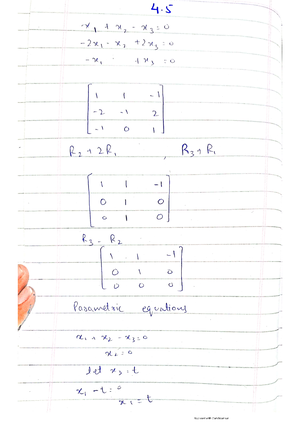 4.5
x₁ + x₂ - x₃ = 0
-2x₁ - x₂ + 2x₃ = 0
-x₁ + x₃ = 0
1 1 -1
-2 -1 2
-1 0 1
R₂ + 2R₁ , R₃ + R₁
1 1 -1
0 1 0
0 1 0
R₃ - R₂
1 1 -1
0 1 0
0 0 0
Parametric equations
x₁ + x₂ - x₃ = 0
x₂ = 0
let x₃ = t
x₁ - t = 0
x₁ = t